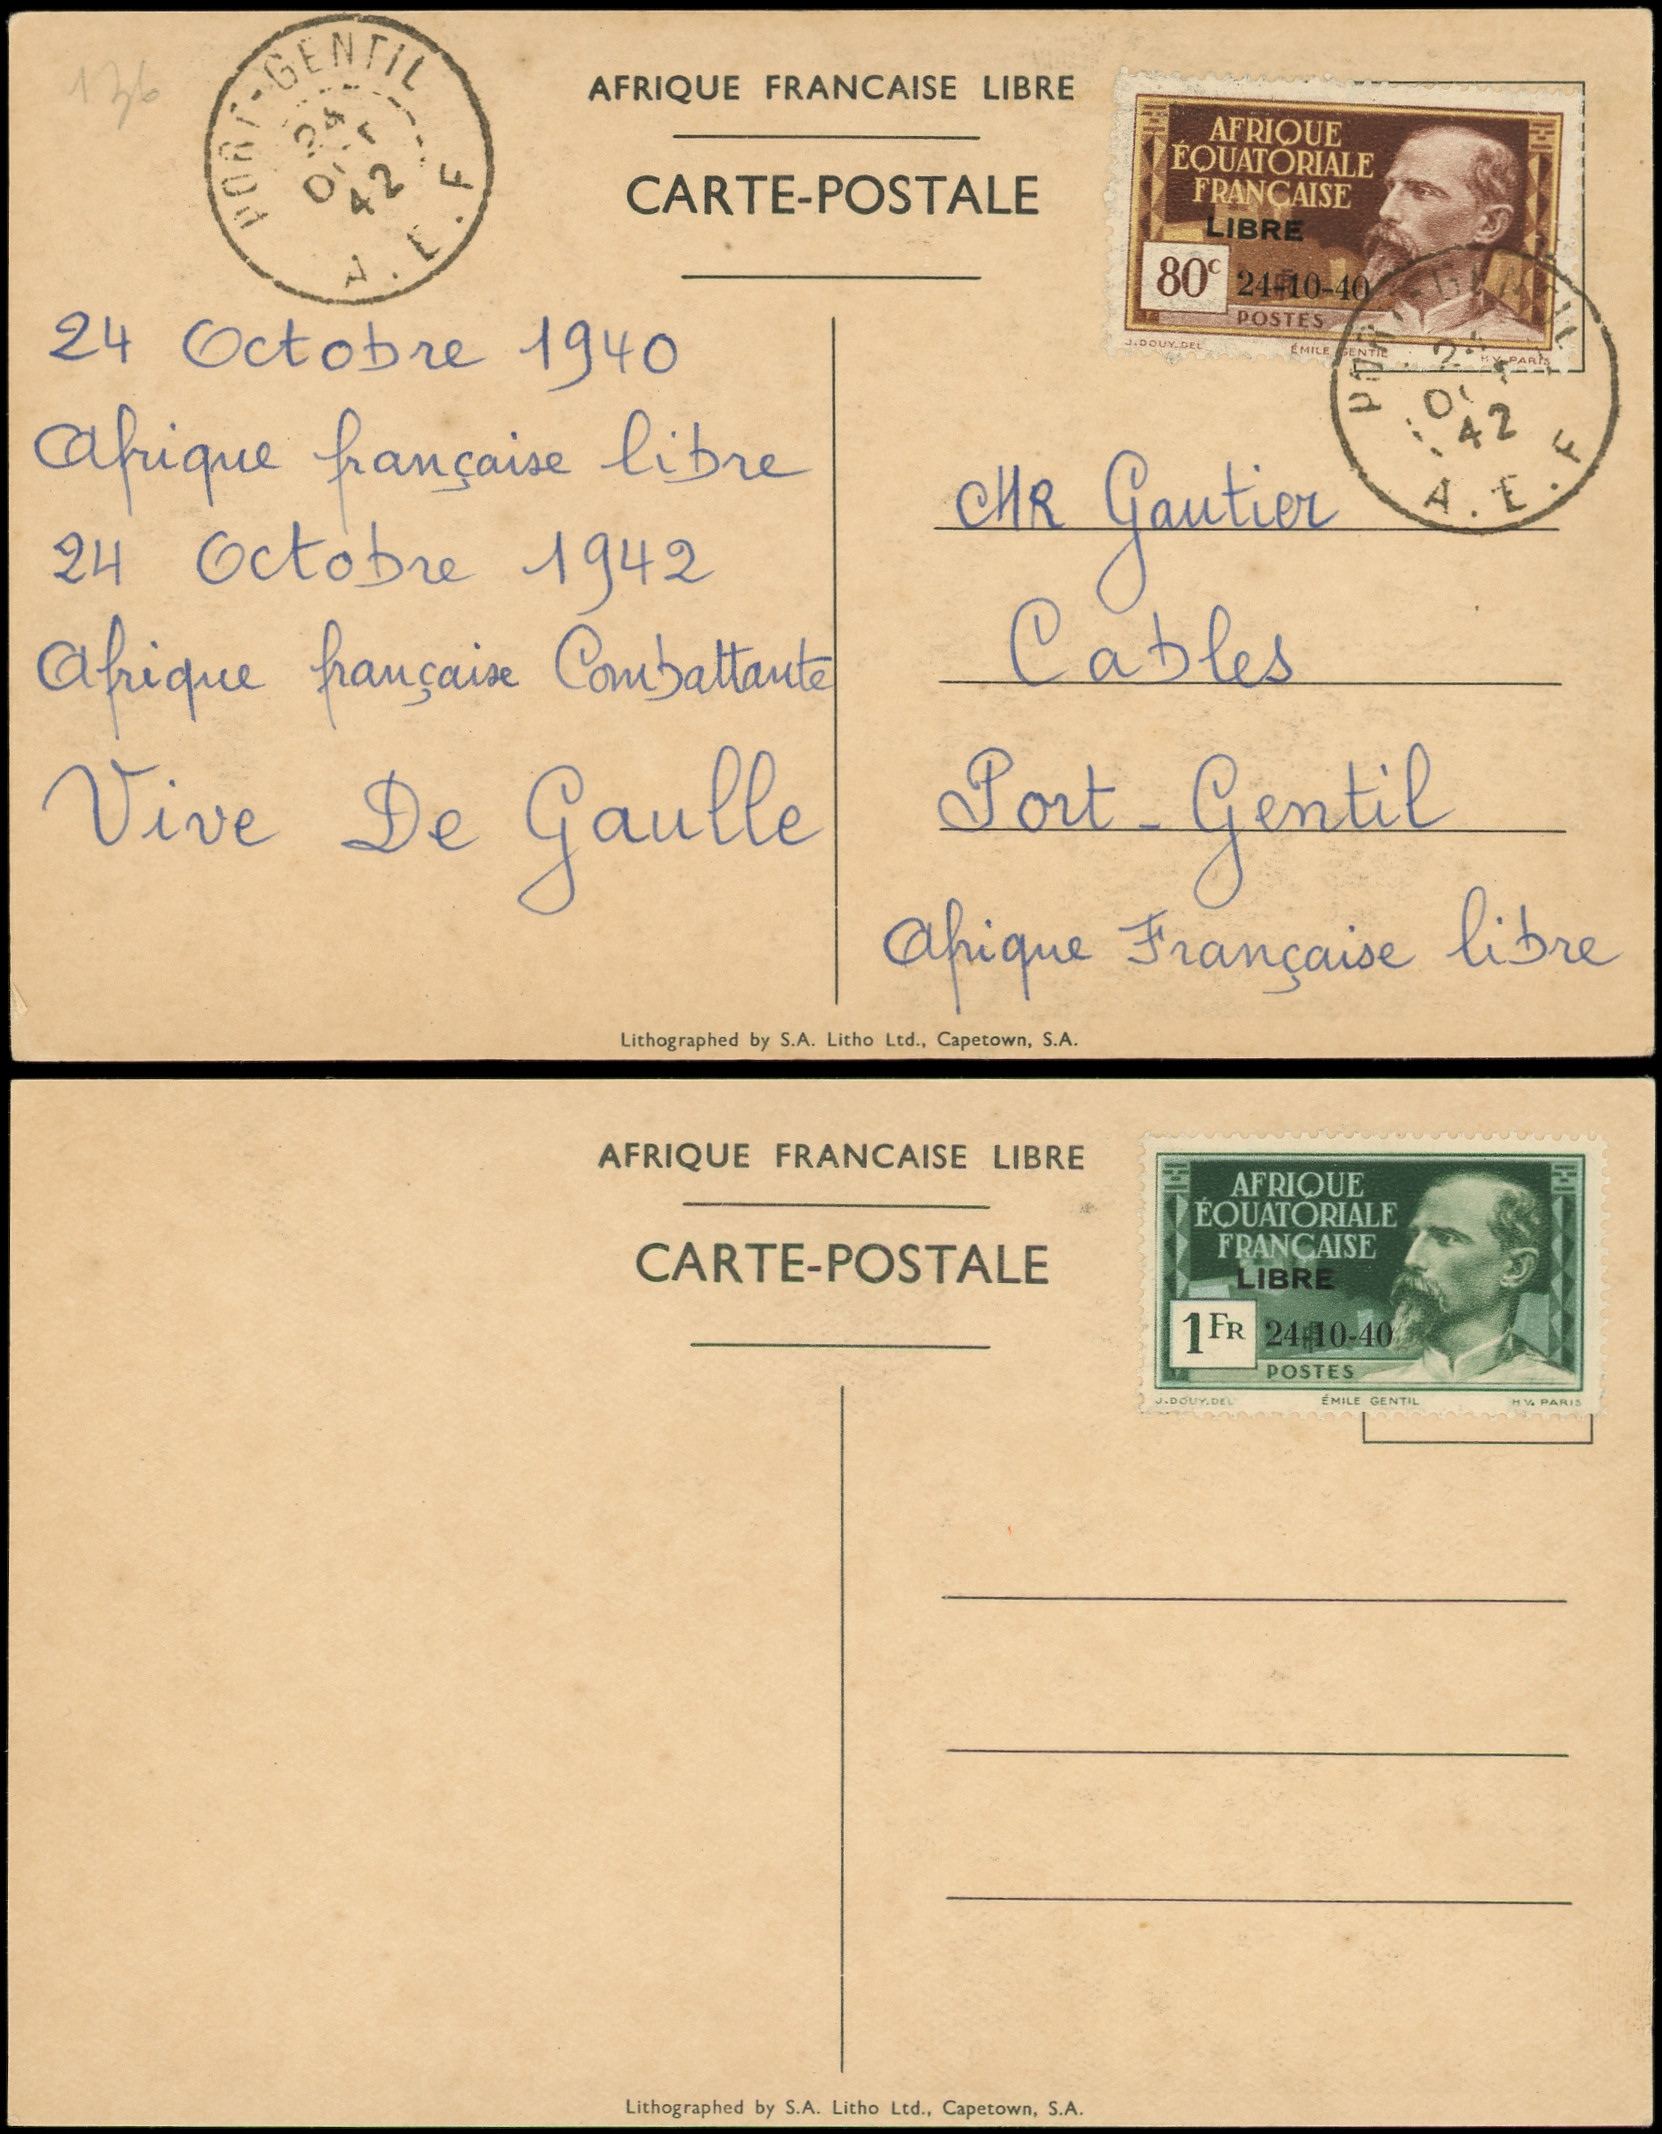 136
PORT-GENTIL
24
42
A.E.F
AFRIQUE FRANCAISE LIBRE
CARTE-POSTALE
AFRIQUE
ÉQUATORIALE
FRANÇAISE
LIBRE
80c 24-10-40
POSTES
J.DOUY.DEL ÉMILE GENTIL H.V. PARIS
PORT-GENTIL
24
42
A.E.F
24 Octobre 1940
Afrique française libre
24 Octobre 1942
Afrique française Combattante
Vive De Gaulle
MR Gautier
Cables
Port-Gentil
Afrique Française libre
Lithographed by S.A. Litho Ltd., Capetown, S.A.
AFRIQUE FRANCAISE LIBRE
CARTE-POSTALE
AFRIQUE
ÉQUATORIALE
FRANÇAISE
LIBRE
1FR 24-10-40
POSTES
J.DOUY.DEL ÉMILE GENTIL H.V. PARIS
Lithographed by S.A. Litho Ltd., Capetown, S.A.